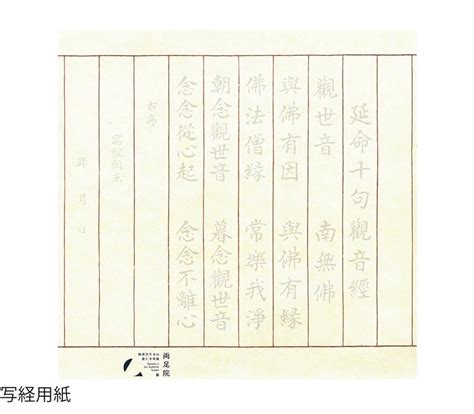 延命十句觀音經
觀世音 南無佛
與佛有因 與佛有縁
佛法僧縁 常樂我淨
朝念觀世音 暮念觀世音
念念從心起 念念不離心
右為
年 月 日
両足院
写経用紙